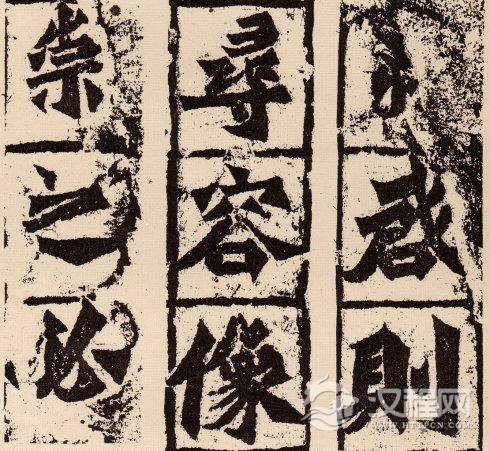 啓則
尋容像
崇之必
汉程网
WWW.HTTPCN.COM